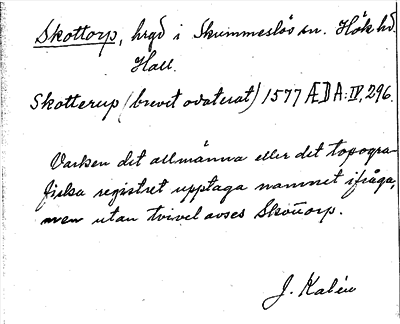 Skottorp, hrgd i Skummeslös sn. Höks hd.
Hall.
Skotterup (brevet odaterat) 1577 ÆDA:IV, 296.
Varken det allmänna eller det topogra-
fiska registret upptaga namnet ifråga,
men utan tvivel avses Skottorp.
J. Kalén